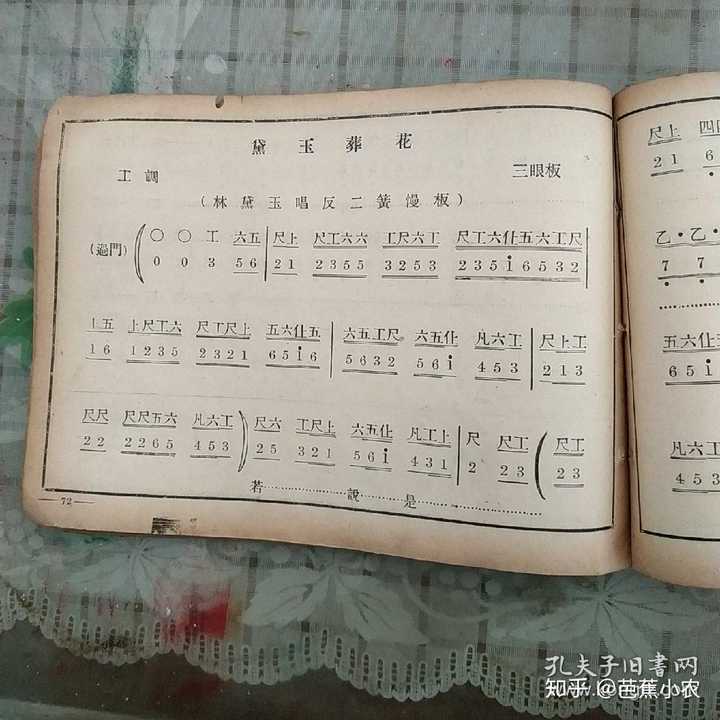 黛玉葬花
工調 三眼板
(林黛玉唱反二簧慢板)
(過門) ( 〇 〇 工 六五 | 尺上 尺工六六 工尺六工 尺工六仩五六工尺 |
0 0 3 56 | 21 2355 3253 235i6532 |
上五 上尺工六 尺工尺上 五六仩五 | 六五工尺 六五仩 凡六工 | 尺上工
16 1235 2321 65i6 | 5632 56i 453 | 213
尺尺 尺尺五六 凡六工 ) 尺六 工尺上 六五仩 凡工上 | 尺 尺工 ( 尺工
22 2265 453 ) 25 321 56i 431 | 2 23 ( 23
若……說……是……
72
尺上 四
21 6
乙·乙·
7 7
五六仩
65i
凡工六
453
孔夫子旧書网
知乎 @芭蕉小农